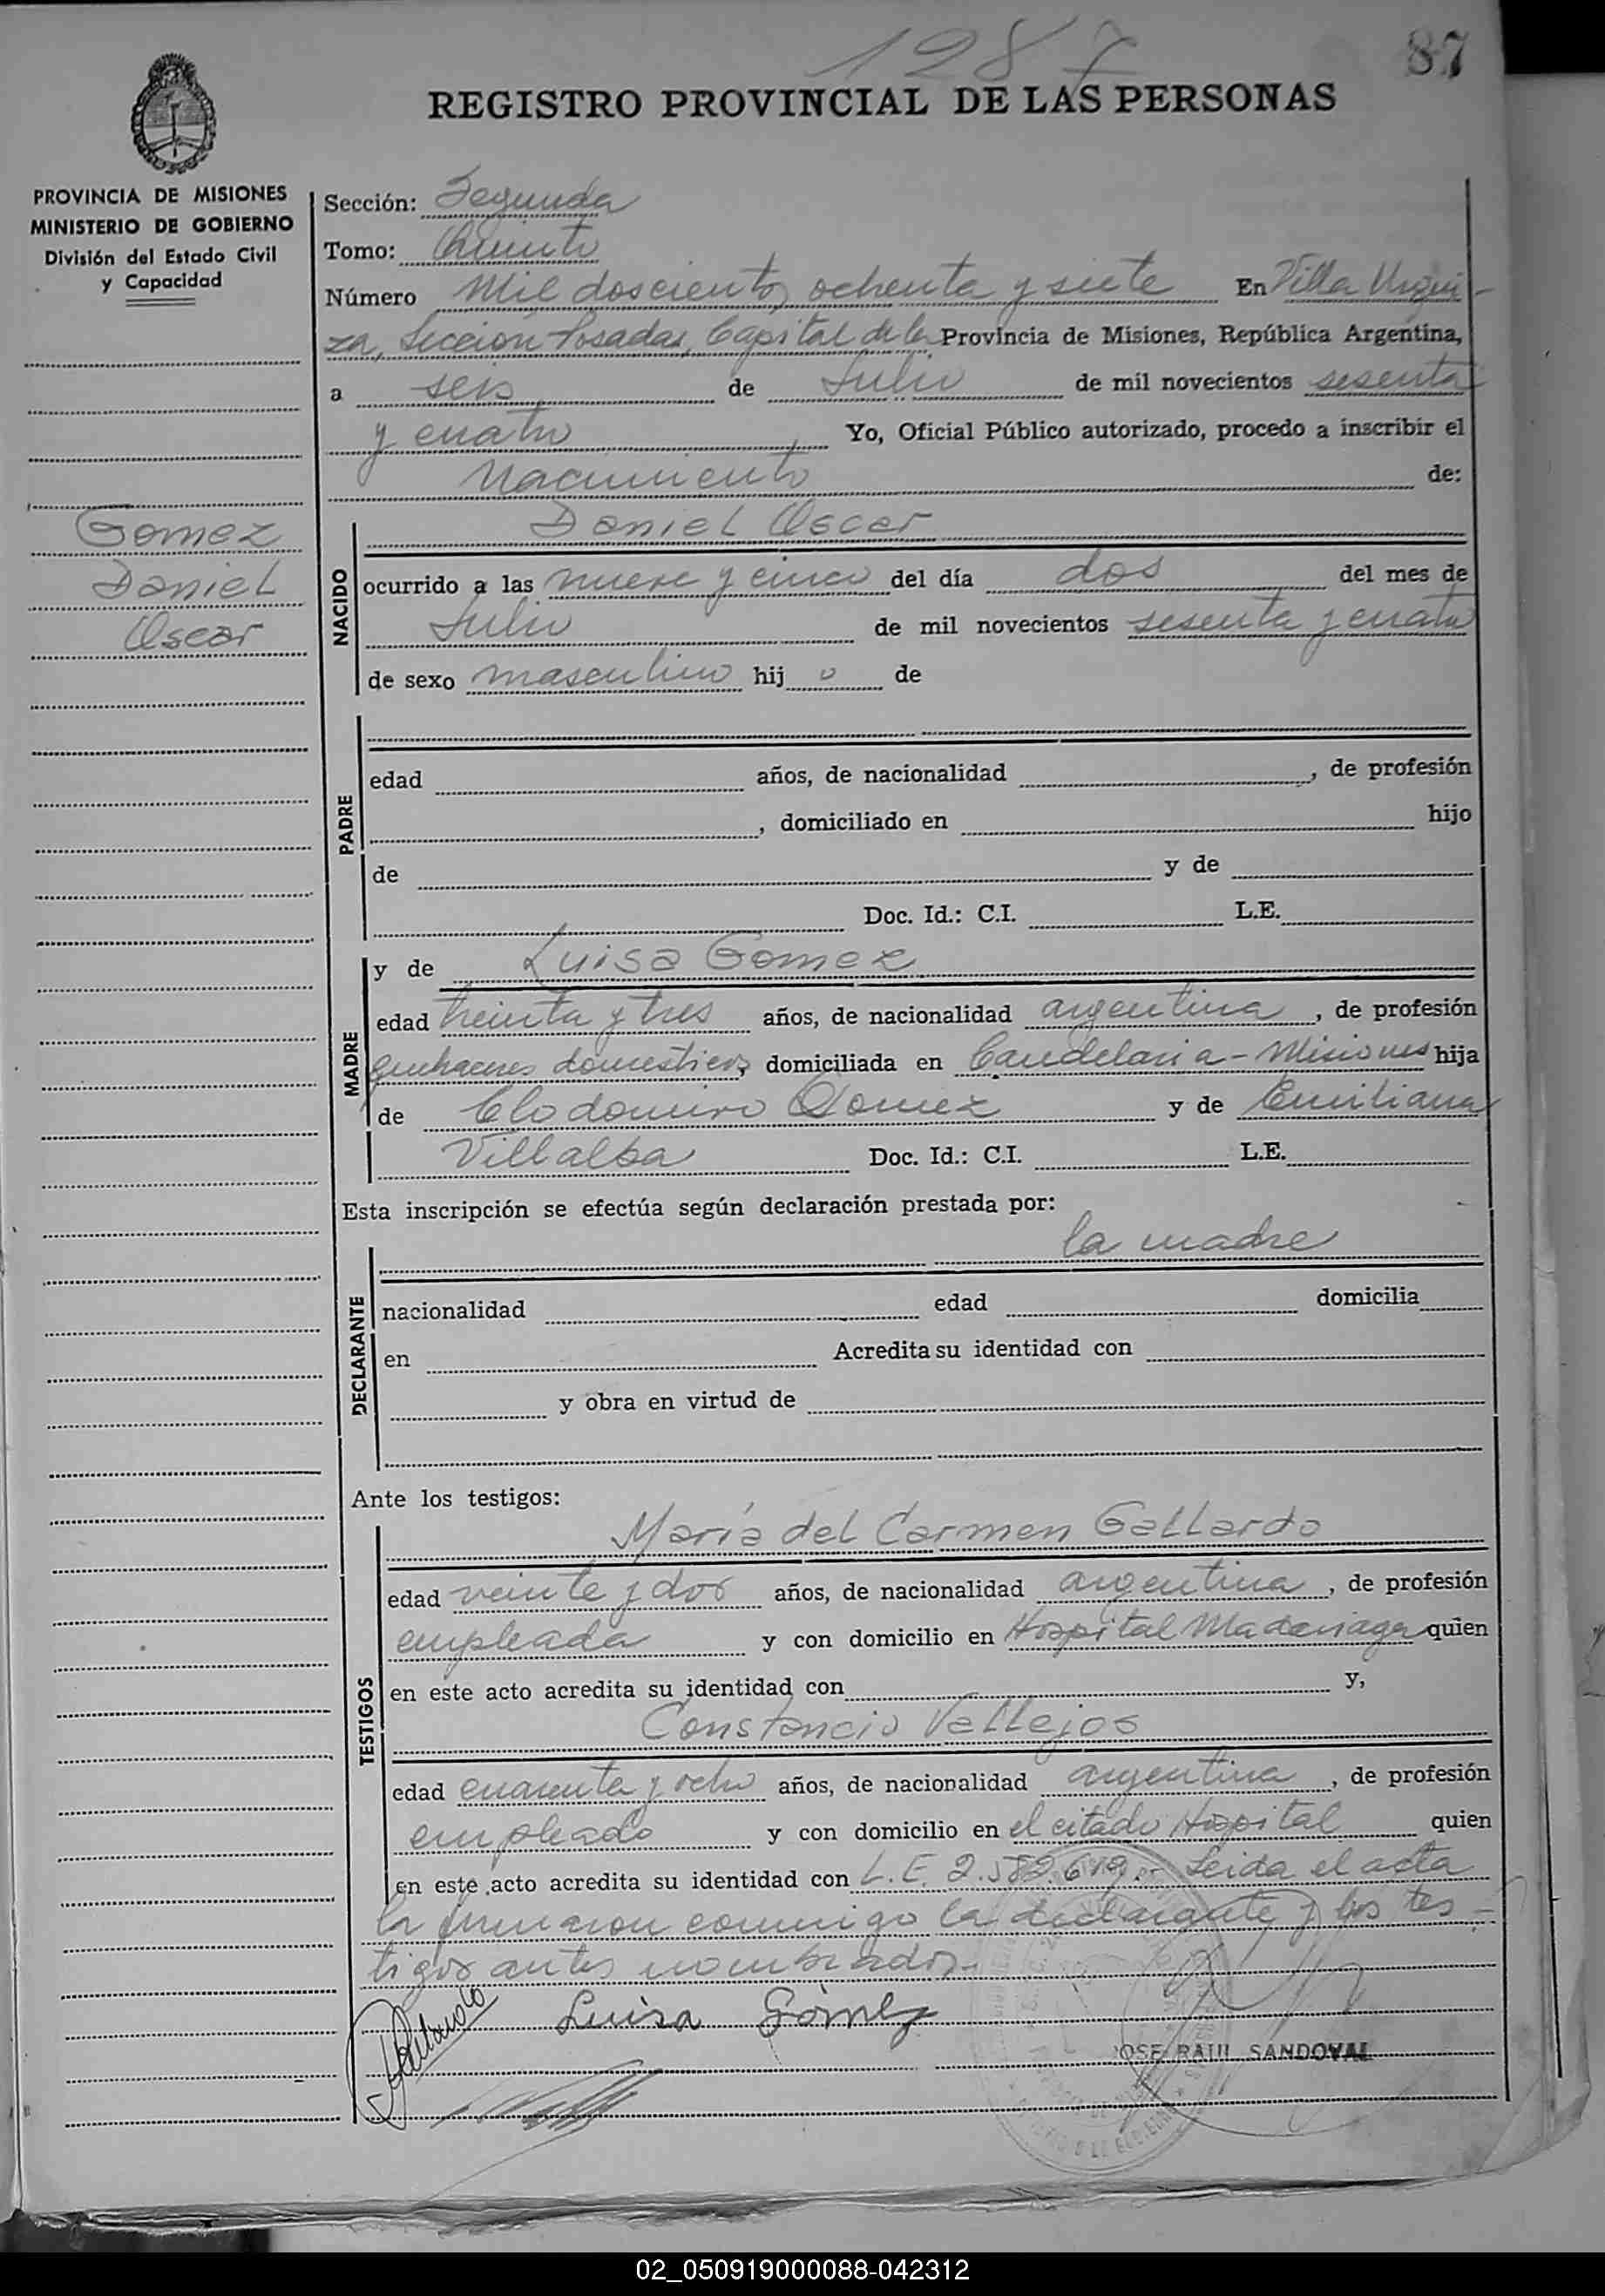 1287
87
REGISTRO PROVINCIAL DE LAS PERSONAS
PROVINCIA DE MISIONES
MINISTERIO DE GOBIERNO
División del Estado Civil
y Capacidad
Sección: Segunda
Tomo: Quinto
Número Mil doscientos ochenta y siete En Villa Urqui-
za, Sección Posadas, Capital de la Provincia de Misiones, República Argentina,
a seis de Julio de mil novecientos sesenta
y cuatro Yo, Oficial Público autorizado, procedo a inscribir el
Nacimiento de:
Gomez
Daniel
Oscar
NACIDO
Daniel Oscar
ocurrido a las nueve y cinco del día dos del mes de
Julio de mil novecientos sesenta y cuatro
de sexo masculino hij o de
PADRE
edad años, de nacionalidad , de profesión
, domiciliado en hijo
de y de
Doc. Id.: C.I. L.E.
MADRE
y de Luisa Gomez
edad treinta y tres años, de nacionalidad argentina, de profesión
quehaceres domesticos, domiciliada en Candelaria - Misiones hija
de Clodomiro Gomez y de Emiliana
Villalba Doc. Id.: C.I. L.E.
Esta inscripción se efectúa según declaración prestada por:
la madre
DECLARANTE
nacionalidad edad domicilia
en Acredita su identidad con
y obra en virtud de
Ante los testigos:
TESTIGOS
María del Carmen Gallardo
edad veinte y dos años, de nacionalidad argentina, de profesión
empleada y con domicilio en Hospital Madariaga quien
en este acto acredita su identidad con y,
Constancio Vallejos
edad cuarenta y ocho años, de nacionalidad argentina, de profesión
empleado y con domicilio en el citado Hospital quien
en este acto acredita su identidad con L.E. 2.582.619.- Leida el acta
la firmaron conmigo la declarante y los tes-
tigos antes nombrados.-
Gallardo
Luisa Gómez
JOSE RAUL SANDOVAL
02_050919000088-042312